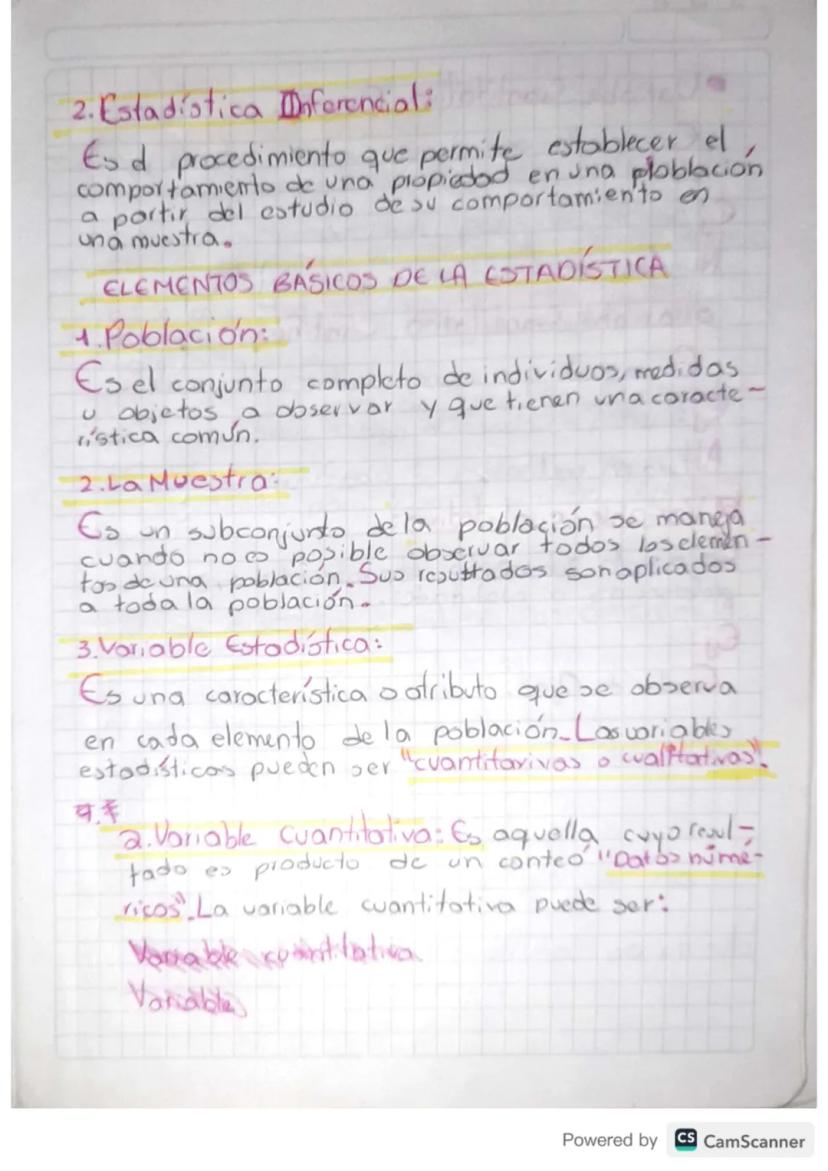 2. Estadística Inferencial:
Es el procedimiento que permite establecer el
comportamiento de una propiedad en una ploblación
a partir del estudio de su comportamiento en
una muestra.
ELEMENTOS BÁSICOS DE LA ESTADÍSTICA
1. Población:
Es el conjunto completo de individuos, medidas
u objetos a observar y que tienen una caracte-
rística común.
2. La Muestra:
Es un subconjunto de la población se maneja
cuando no es posible observar todos los elemen-
tos de una población. Sus resultados son aplicados
a toda la población.
3. Variable Estadística:
Es una característica o atributo que se observa
en cada elemento de la población. Las variables
estadísticas pueden ser "cuantitativas o cualitativas".
a. Variable cuantitativa: Es aquella cuyo resul-
tado es producto de un conteo "Datos numé-
ricos". La variable cuantitativa puede ser:
Variable cuantitativa
Variables
Powered by CS CamScanner